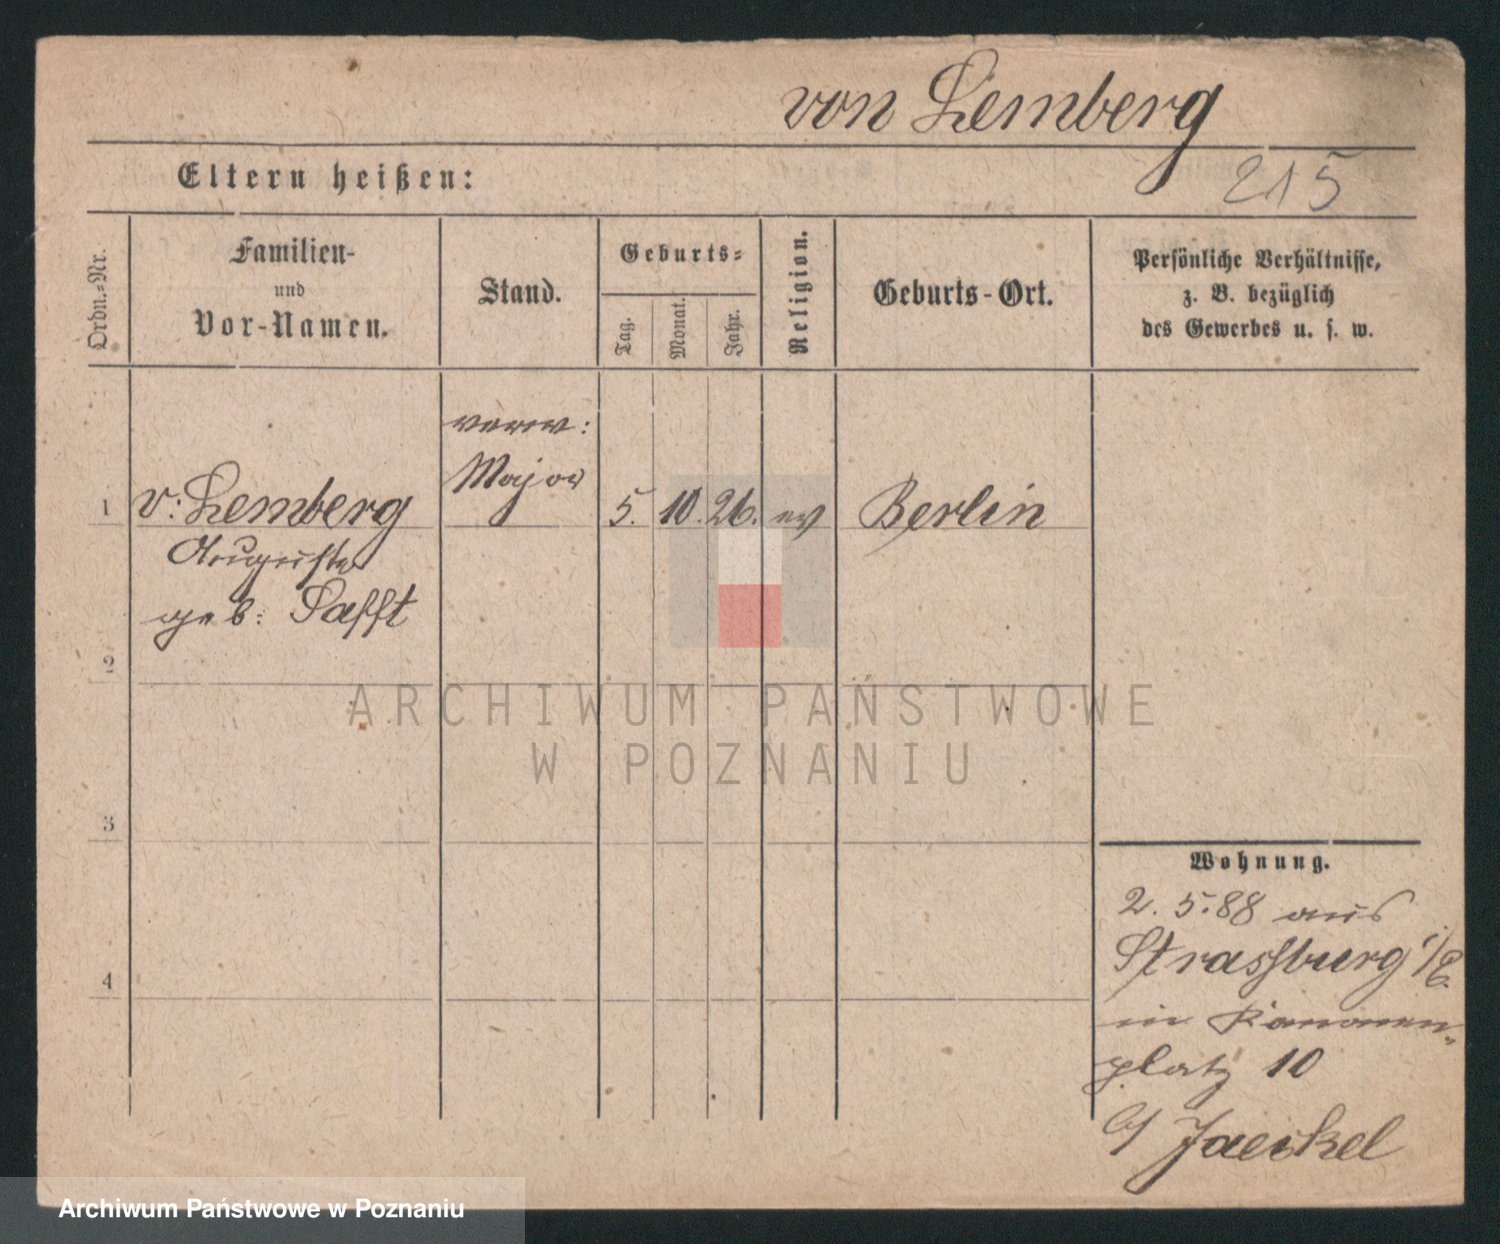 von Lemberg
Eltern heißen:
215
Ordn.-Nr.
Familien-
und
Vor-Namen.
Stand.
Geburts-
Tag.
Monat.
Jahr.
Religion.
Geburts-Ort.
Persönliche Verhältnisse,
z. B. bezüglich
des Gewerbes u. s. w.
verw:
Major
1 v: Lemberg 5. 10. 26. ev Berlin
Auguste
geb: Safft
2
ARCHIWUM PAŃSTWOWE
W POZNANIU
3
Wohnung.
2. 5. 88 aus
Strassburg i/E.
in Kanonen-
platz 10
4
b/ Jaeckel
Archiwum Państwowe w Poznaniu